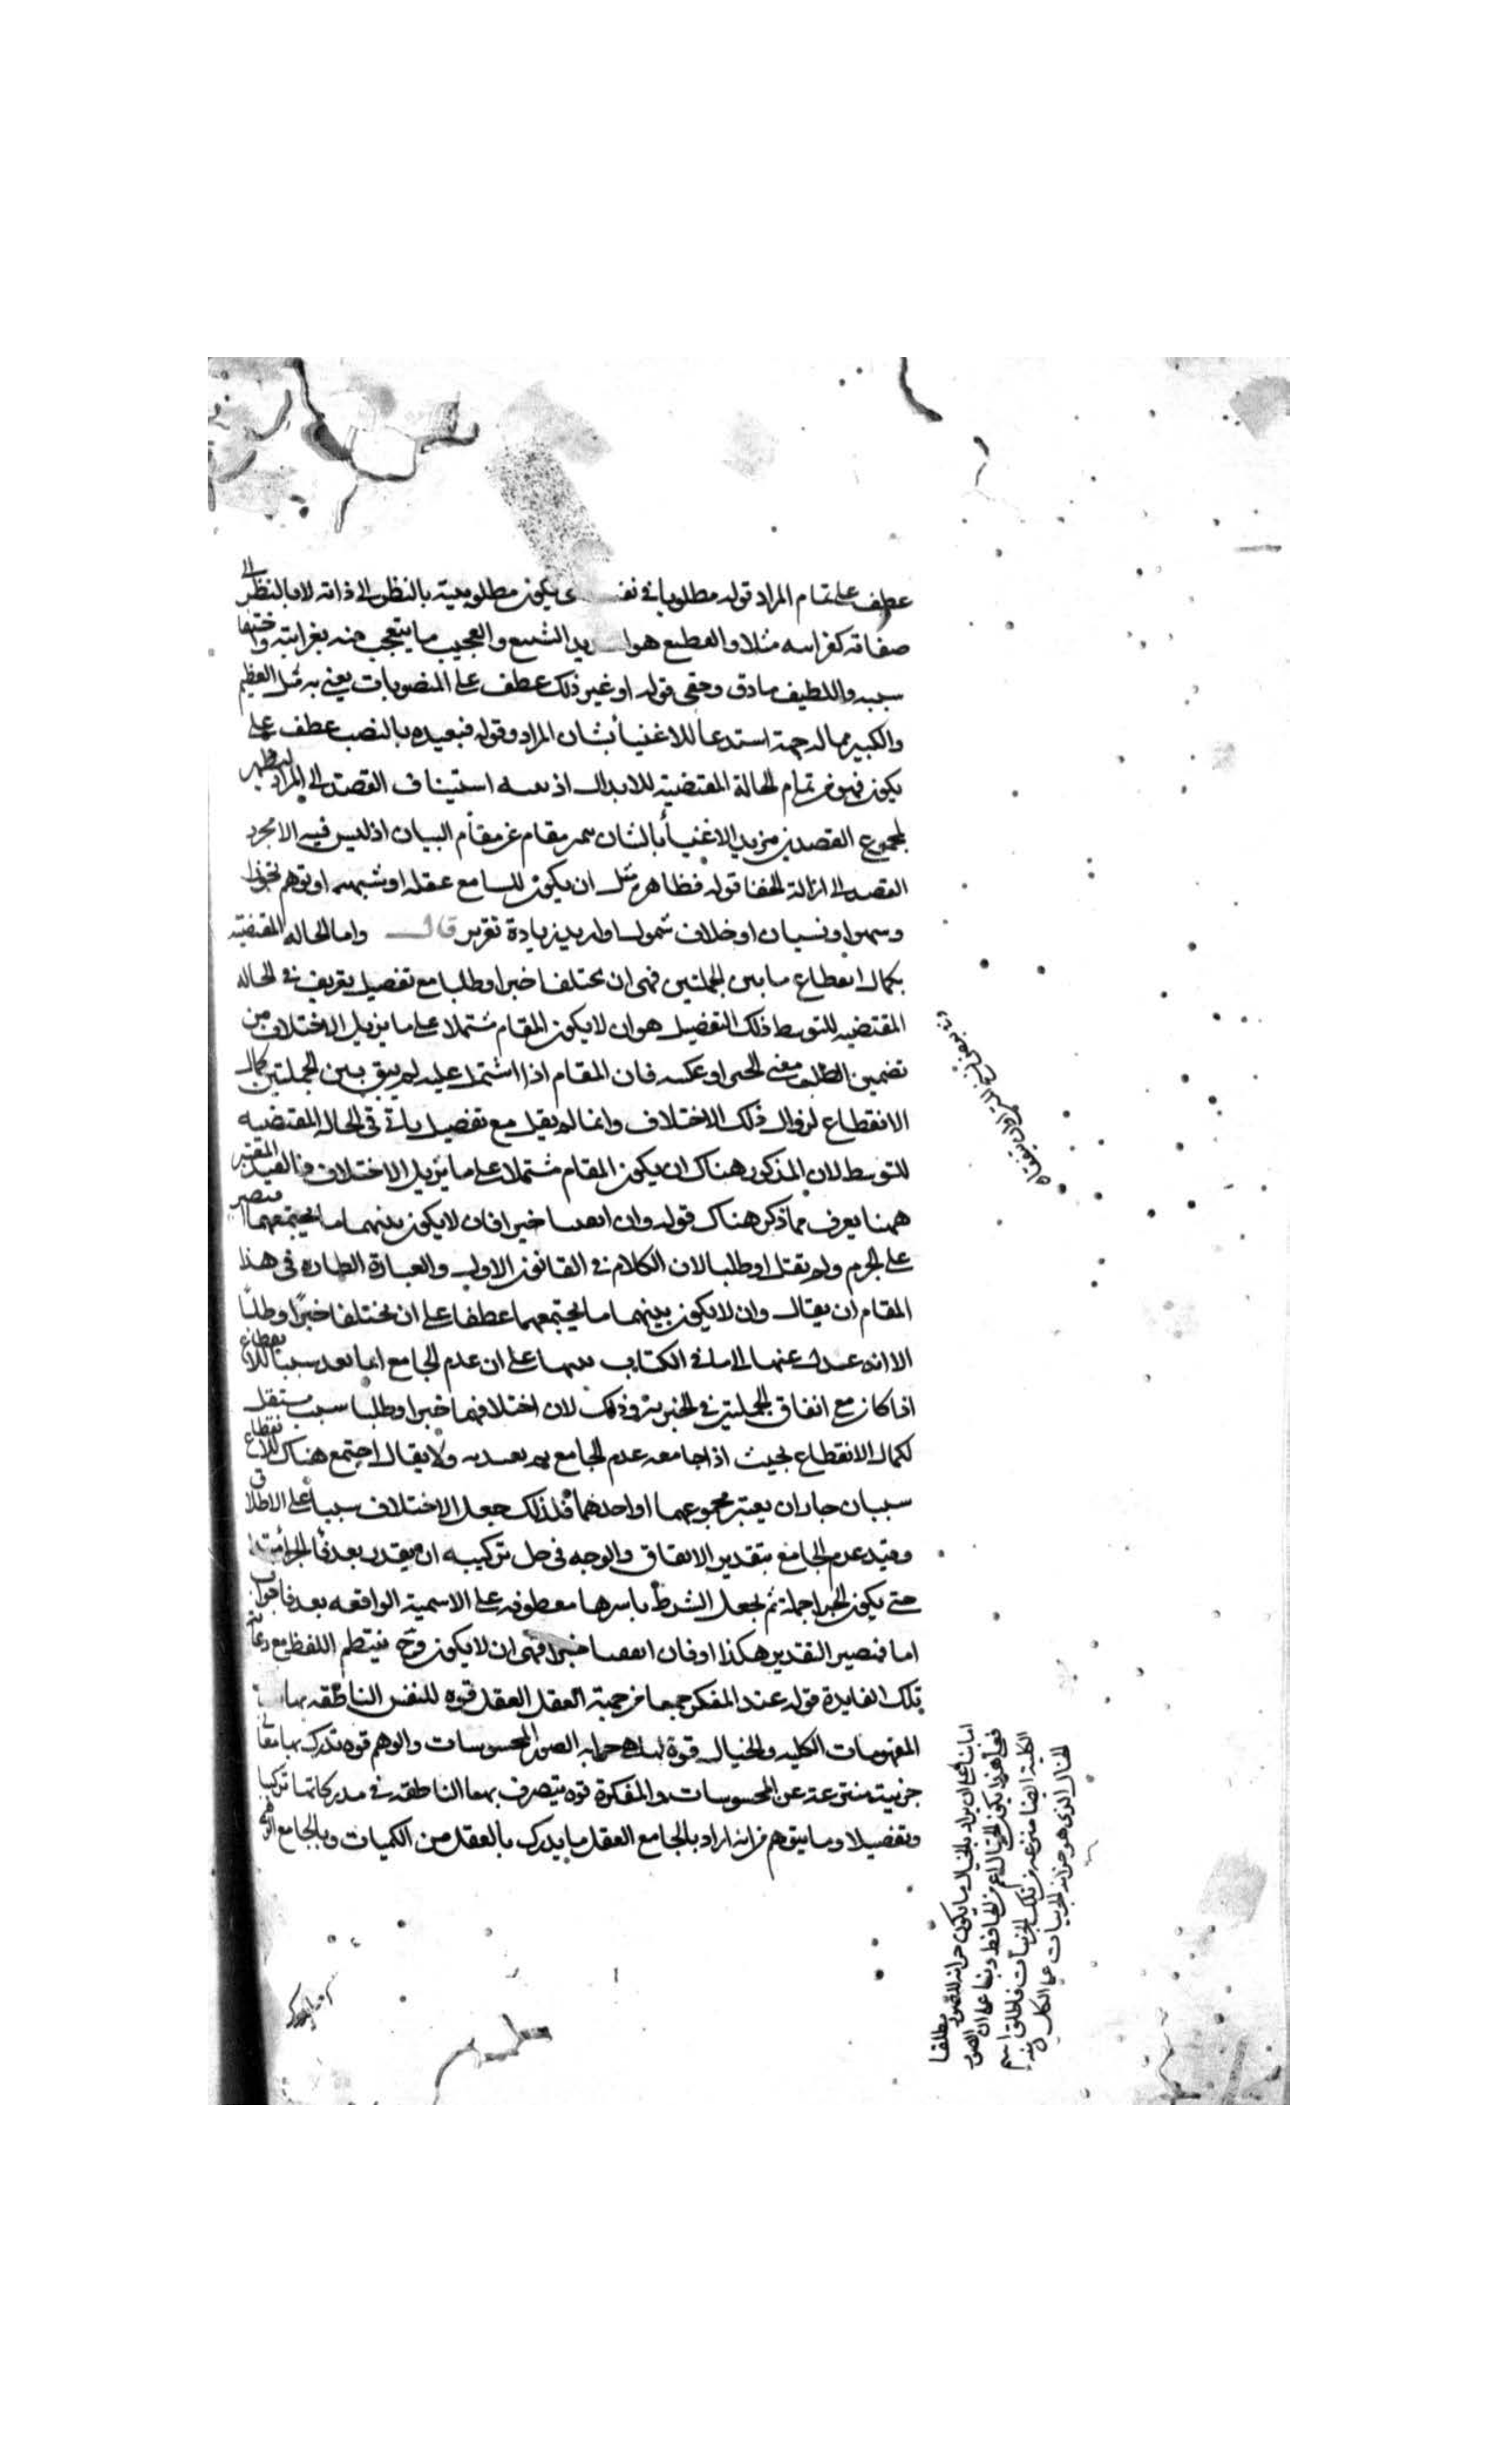 عطف على تمام المراد قوله مطلوبا في نفسه اى يكون مطلوبيته بالنظر الى ذاته لا بالنظر الى
صفاته كغرابته مثلا والفظيع هو الشديد الشنيع والعجيب ما يتعجب منه بغرابته واختفا
سببه واللطيف ما دق وخفى قوله او غير ذلك عطف على المنصوبات يعنى به مثل العظيم
والكبير مما له جهة استدعا للاعتنا بشان المراد وقوله فبعيده بالنصب عطف على
يكون فهو من تمام الحالة المقتضية للابدال اذ فيه استيناف القصد الى المراد ليظهر
بمجموع القصدين مزيد الاعتنا بالشان مقام عن مقام البيان اذ ليس فيه الا مجرد
القصد الى ازالة الخفا قوله فظاهر مثل ان يكون للسامع غفلة او شبهه او توهم تجوز
وسهو او نسيان او خلاف شمول او اريد زيادة تقرير قال واما الحالة المقتضية
بكمال انقطاع ما بين الجملتين فهى ان يختلفا خبرا وطلبا مع تفصيل يعرف في الحالة
المقتضيه للتوسط ذلك التفصيل هو ان لا يكون المقام مشتملا على ما يزيل الاختلاف من
تضمين الطلب معنى الخبر او عكسه فان المقام اذا اشتمل عليه لم يبق بين الجملتين كمال
الانقطاع لزوال ذلك الاختلاف وانما لم يقل مع تفصيل ياتى في الحالة المقتضيه
للتوسط لان المذكور هناك ان يكون المقام مشتملا على ما يزيل الاختلاف فالقيد المعتبر
ههنا يعرف مما ذكر هناك قوله وان اتفقا خبرا فان لا يكون بينهما ما يجتمعهما
على الجزم ولم يقل او طلبا لان الكلام في القانون الاول والعبارة الظاهره فى هذا
المقام ان يقال وان لا يكون بينهما ما يجتمعهما عطفا على ان يختلفا خبرا وطلبا
الا انه عدل عنها الى ما في الكتاب تنبيها على ان عدم الجامع انما يعد سببا للانقطاع
اذا كان مع اتفاق الجملتين في الخبرية وذلك لان اختلافهما خبرا وطلبا سبب مستقل
لكمال الانقطاع بحيث اذا جامعه عدم الجامع لم يعتد به ولا يقال اجتمع هناك للانقطاع
سببان جاز ان يعتبر مجموعهما او احدهما فلذلك جعل الاختلاف سببا على الاطلاق
وقيد عدم الجامع بتقدير الاتفاق والوجه فى حل تركيبه ان يقدر بعد فا الجزا مبتدا
حتى يكون الجزا جملة ثم يجعل الشرط باسرها معطوفه على الاسمية الواقعه بعد فا جواب
اما فيصير التقدير هكذا او فان اتفقا خبرا فهى ان لا يكون وح ينتظم اللفظ مع رعاية
تلك الفايدة قوله عند المفكر جمعا من جهة العقل العقل قوه للنفس الناطقه بها
المفهومات الكليه والخيال قوة لها هى خزانة الصور المحسوسات والوهم قوه تدرك بها معانى
جزئية منتزعة عن المحسوسات والمفكرة قوه يتصرف بها الناطقه في مدركاتها تركيبا
وتفصيلا وما يتوهم من انه اراد بالجامع العقل ما يدرك بالعقل من الكليات وبالجامع الوهمى
اما بنا على ان يراد بالخيال ما يكون خزانه للصور مطلقا
فعلى هذا يكون الخيال اعم من الحافظ وبنا على ان الصور
الكلية ايضا منتزعه من تلك الجزئيات فاطلق اسم
الخيال الذى هو خزانة الجزئيات على الكل